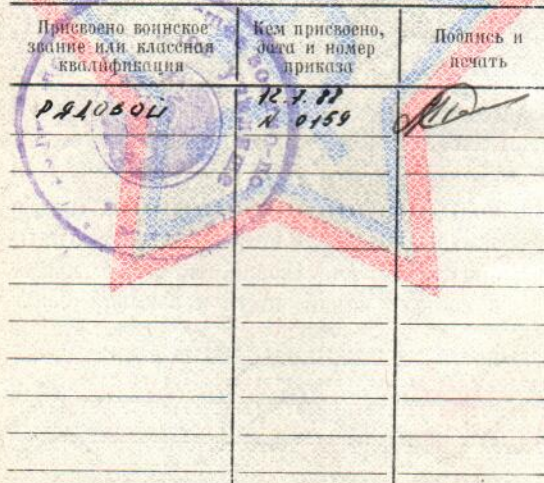 Присвоено воинское звание или классная квалификация
Кем присвоено, дата и номер приказа
Подпись и печать
РЯДОВОЙ
12.7.88
N 0159